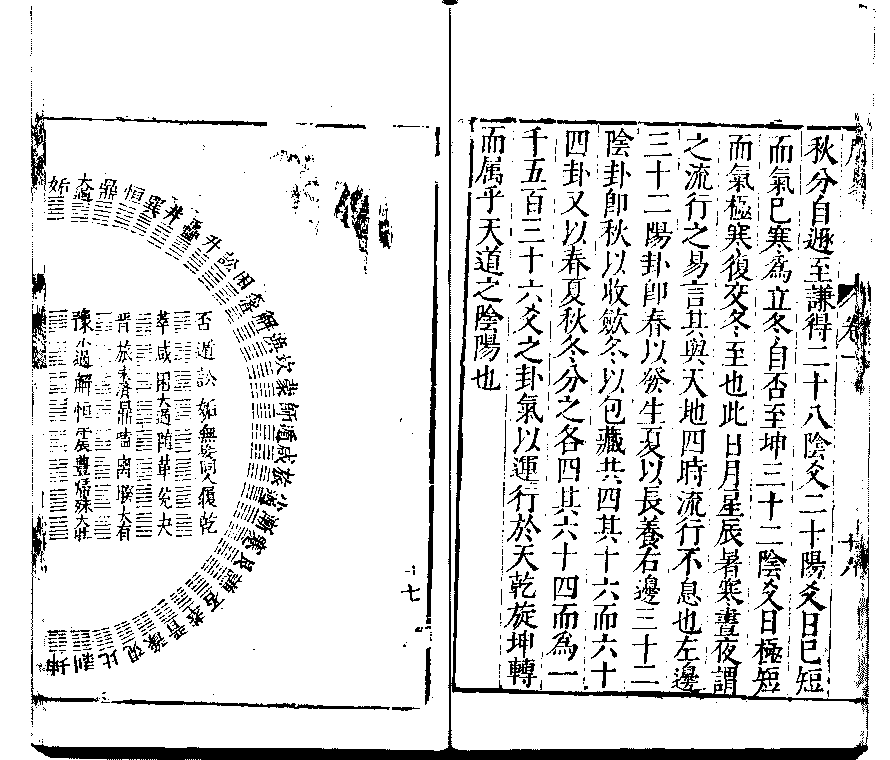 秋分自遯至謙得二十八陰爻二十陽爻日已短
而氣已寒爲立冬自否至坤三十二陰爻日極短
而氣極寒復交冬至也此日月星辰暑寒晝夜謂
之流行之易言其與天地四時流行不息也左邊
三十二陽卦卽春以發生夏以長養右邊三十二
陰卦卽秋以收斂冬以包藏共四其十六而六十
四卦又以春夏秋冬分之各四其六十四而爲一
千五百三十六爻之卦氣以運行於天乾旋坤轉
而属乎天道之陰陽也
卷一
姤
大過
鼎
恒
巽
井
蠱
升
訟
困
未濟
解
渙
坎
蒙
師
遯
咸
旅
小過
漸
蹇
艮
謙
否
萃
晉
豫
觀
比
剝
坤
否遯訟姤無妄同人履乾
萃咸困大過隨革兌夬
晉旅未濟鼎噬離睽大有
豫小過解恒震豐歸妹大壯
十七